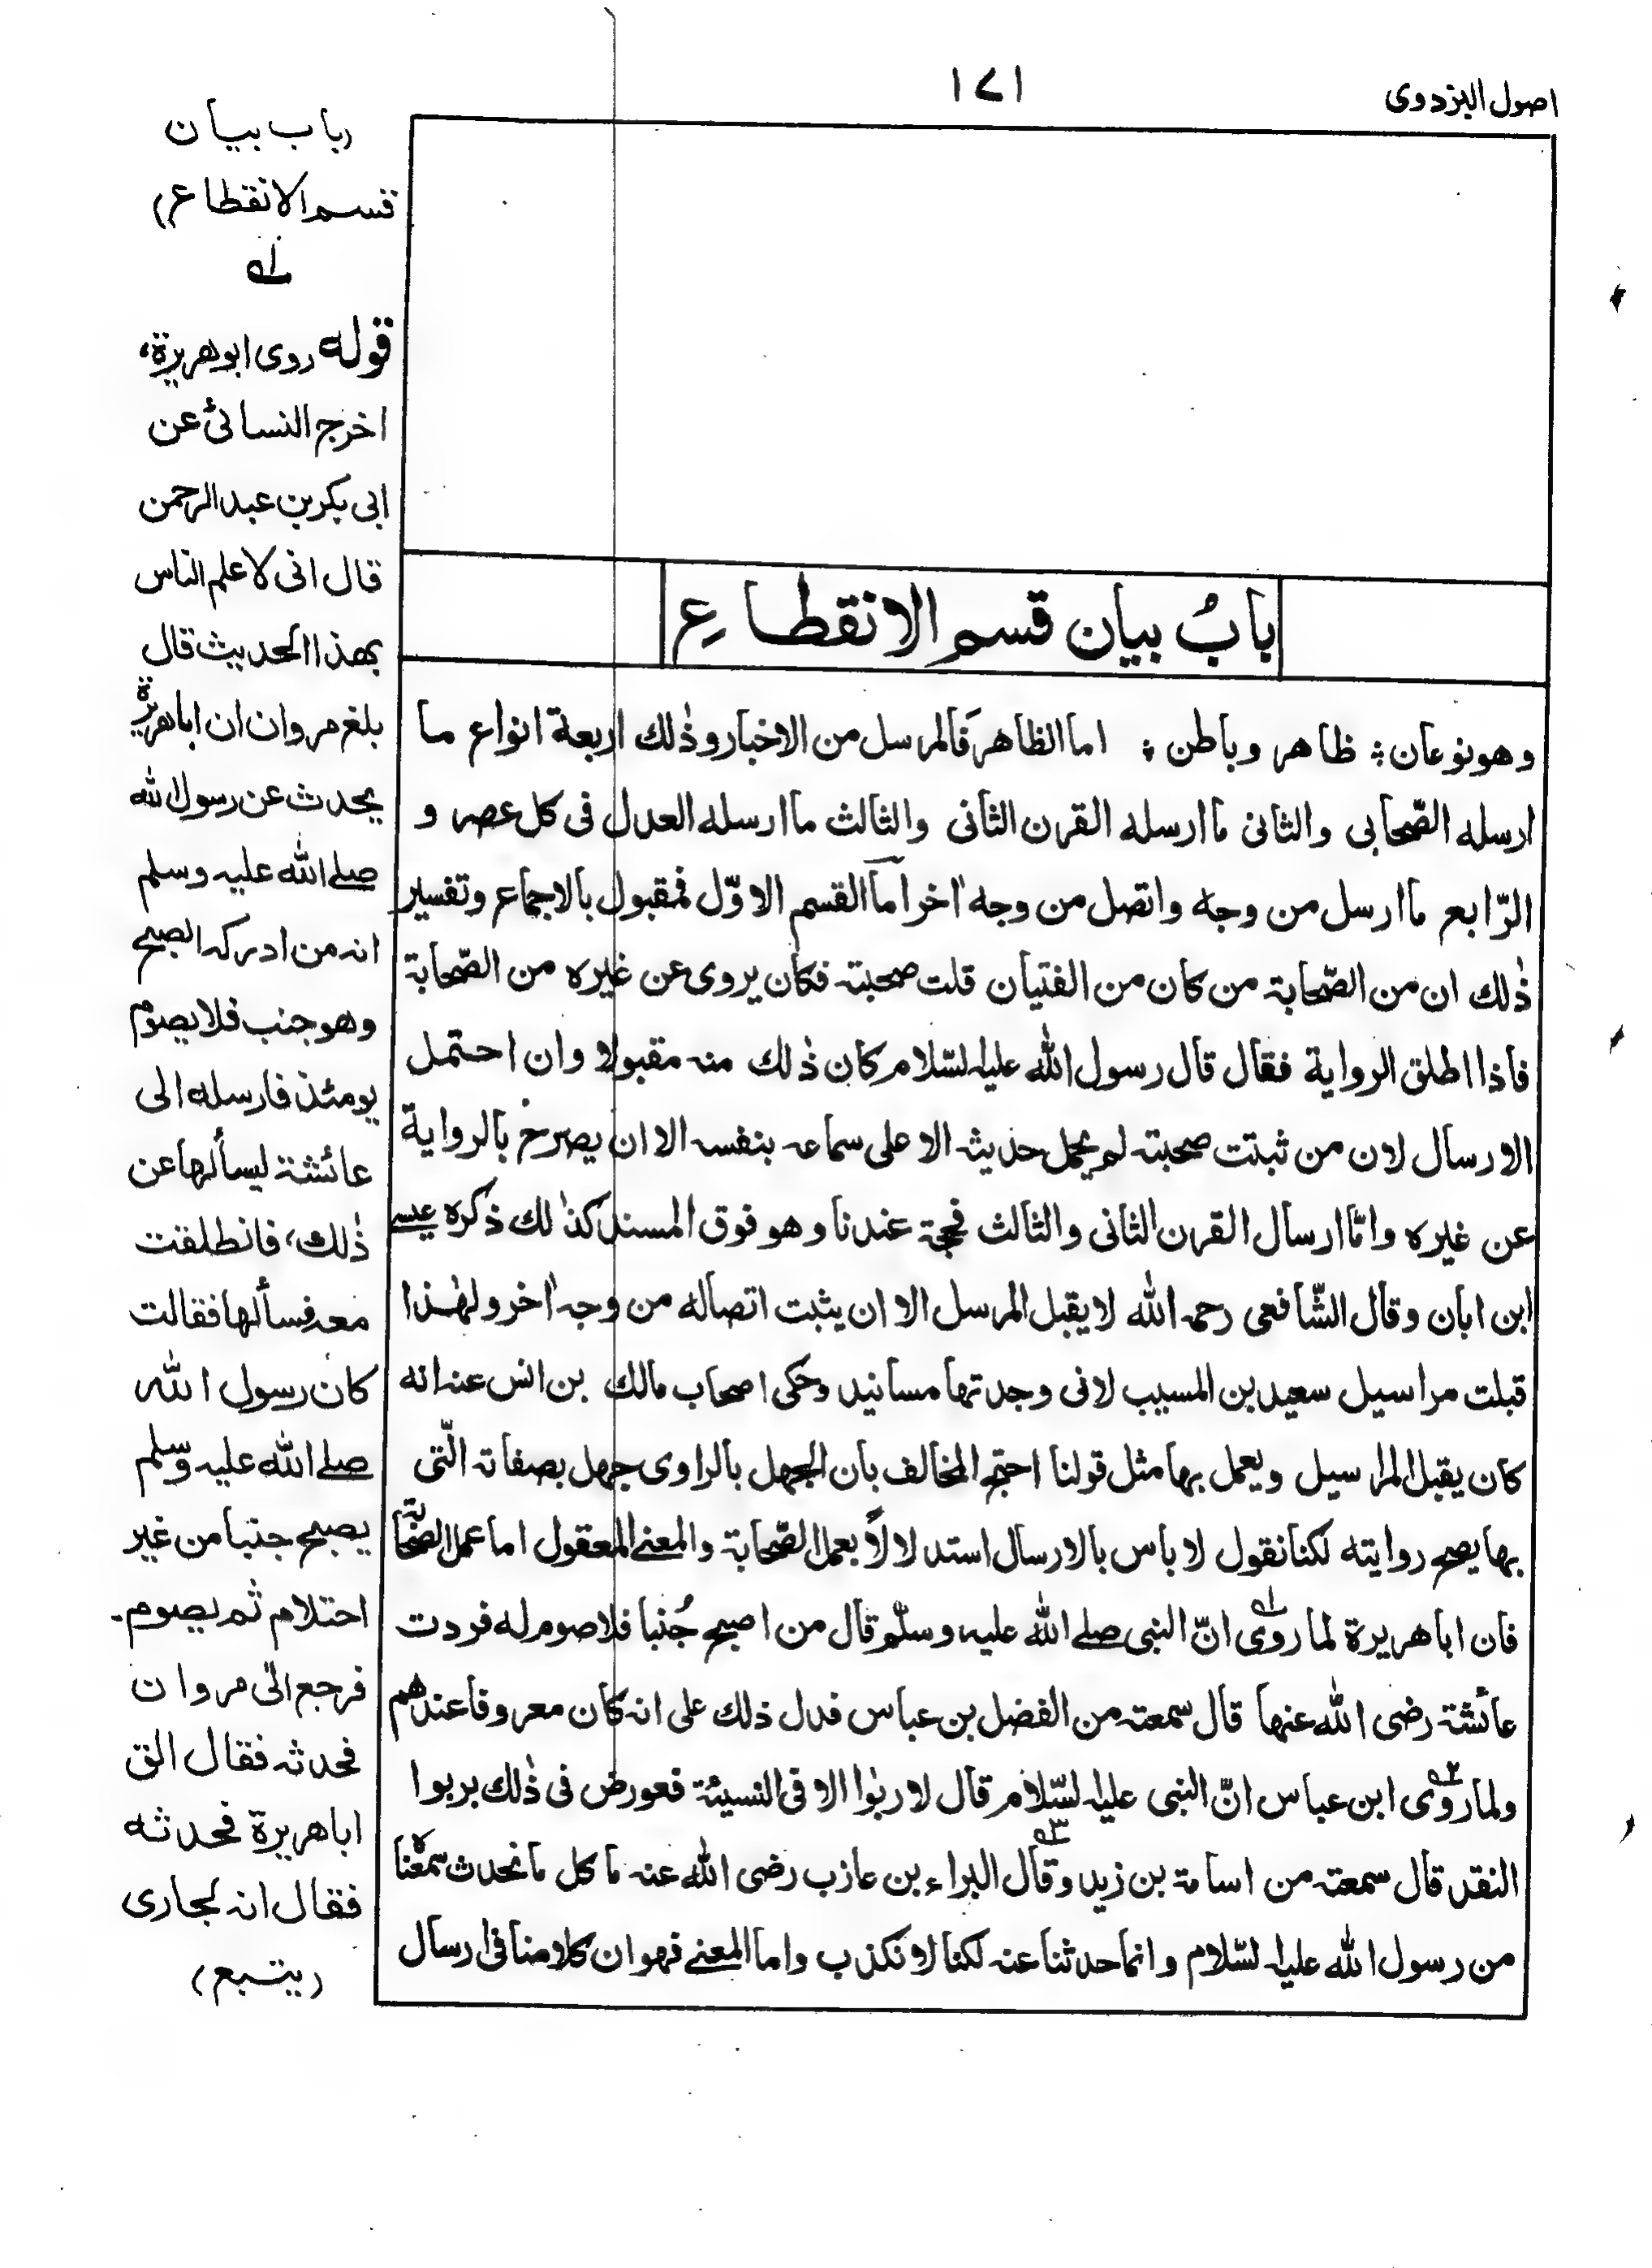 اصول البزدوى
١٧١
باب بيان قسم الانقطاعِ
وهو نوعان: ظاهر وباطن: اما الظاهر فالمرسل من الاخبار وذٰلك اربعة انواع ما
ارسله الصّحابى والثانى ما ارسله القرن الثانى والثالث ما ارسله العدل فى كل عصر و
الرّابع ما ارسل من وجه واتصل من وجه اٰخر اما القسم الاوّل فمقبول بالاجماع وتفسير
ذٰلك ان من الصّحابة من كان من الفتيان قلت صحبته فكان يروى عن غيره من الصّحابة
فاذا اطلق الرواية فقال قال رسول الله عليه السّلام كان ذٰلك منه مقبولا وان احتمل
الارسال لان من ثبتت صحبته لم يحمل حديثه الا على سماعه بنفسه الا ان يصرح بالرواية
عن غيره وامّا ارسال القرن الثانى والثالث فحجة عندنا وهو فوق المسند كذٰلك ذكره عيسے
ابن ابان وقال الشّافعى رحمه الله لا يقبل المرسل الا ان يثبت اتصاله من وجه اٰخر ولهٰذا
قبلت مراسيل سعيد بن المسيب لانى وجدتها مسانيد وحكى اصحاب مالك بن انس عنه انه
كان يقبل المراسيل ويعمل بها مثل قولنا احتج المخالف بان الجهل بالراوى جهل بصفاته الّتى
بها يصح روايته لكنا نقول لا باس بالارسال استدلالاً بعمل الصّحابة والمعنے المعقول اما عمل الصّحابة
فان ابا هريرة لما روى انّ النبى صلے الله عليه وسلّم قال من اصبح جُنبا فلا صوم له فردت
عائشة رضى الله عنها قال سمعته من الفضل بن عباس فدل ذلك على انه كان معروفا عندهم
ولما روى ابن عباس انّ النبى عليه السّلام قال لا ربٰوا الا فى النسيئة فعورض فى ذٰلك بربوا
النقد قال سمعته من اسامة بن زيد وقال البراء بن عازب رضى الله عنه ما كل ما نحدث سمعناه
من رسول الله عليه السّلام وانما حدثنا عنه لكنا لا نكذب واما المعنے فهو ان كلامنا فى ارسال
(باب بيان
قسم الانقطاع)
١ـه
قوله روى ابوهريرة،
اخرج النسائى عن
ابى بكر بن عبد الرحمن
قال انى لاعلم الناس
بهذا الحديث قال
بلغ مروان ان اباهريرة
يحدث عن رسول الله
صلے الله عليه وسلم
انه من ادركه الصبح
وهو جنب فلا يصوم
يومئذ فارسله الى
عائشة ليسألها عن
ذٰلك، فانطلقت
معه فسألها فقالت
كان رسول الله
صلے الله عليه وسلم
يصبح جنبا من غير
احتلام ثم يصوم۔
فرجع الى مروان
فحدثه فقال الق
اباهريرة فحدثه
فقال انه لجارى
(يتبع)